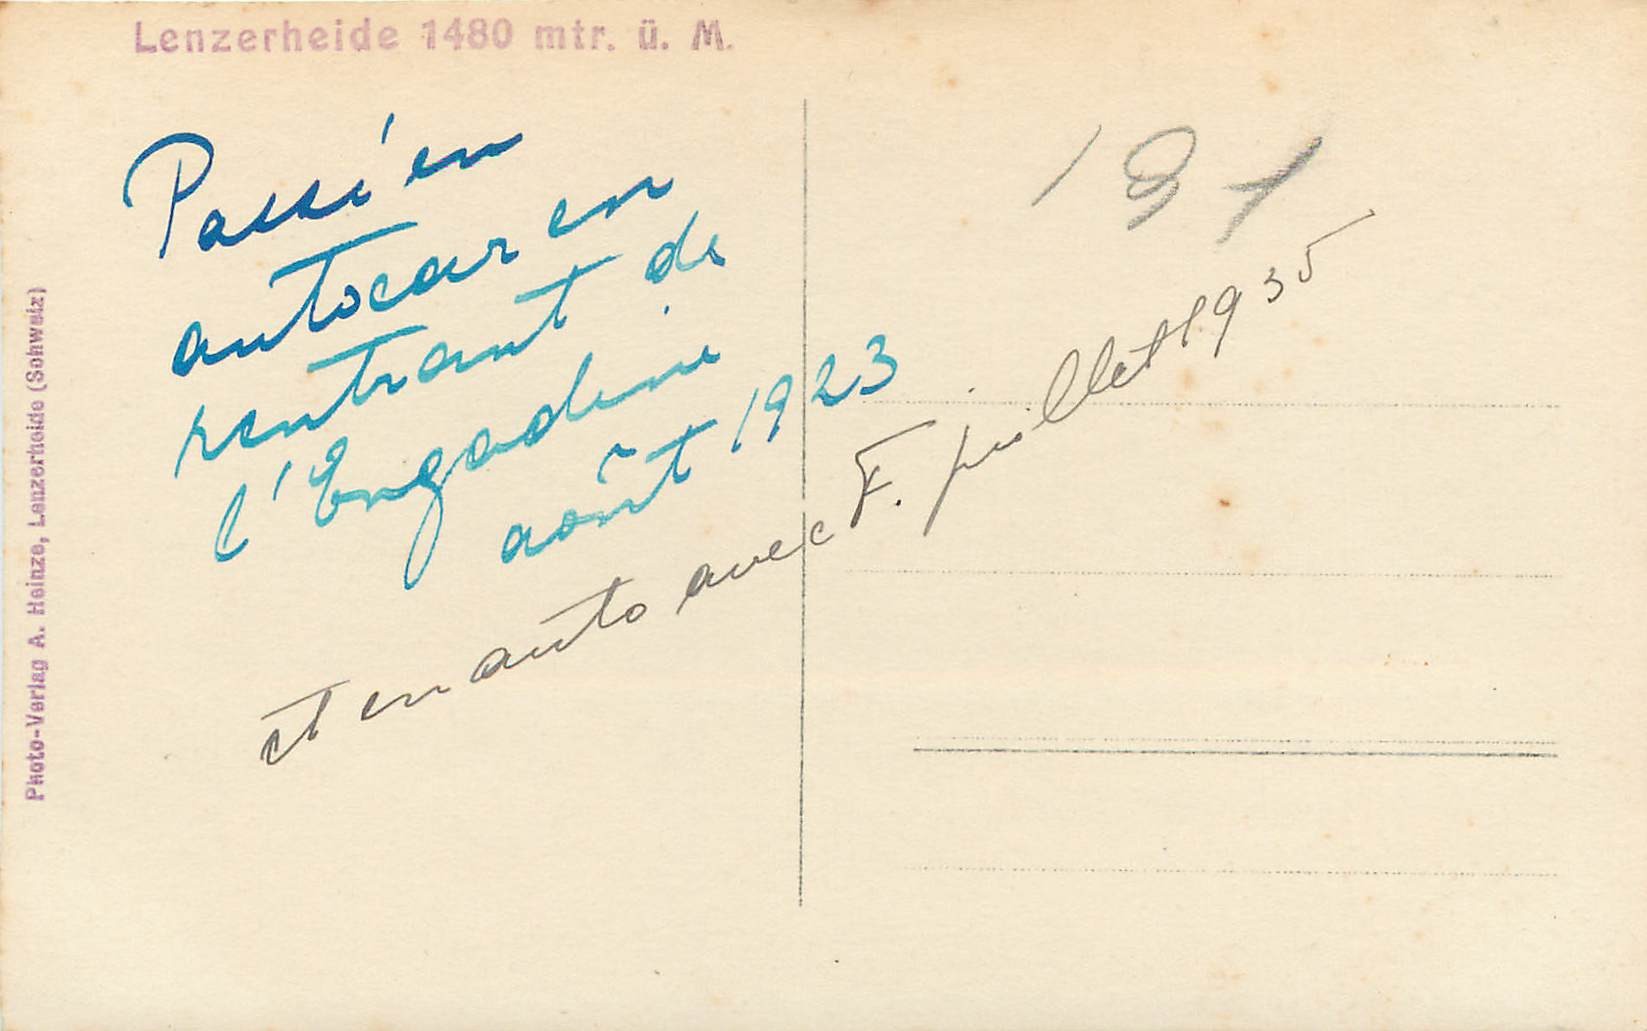 Lenzerheide 1480 mtr. ü. M.
Passé en
autocar en
rentrant de
l'Engadine
août 1923
et en auto avec F. juillet 1935
Photo-Verlag A. Heinze, Lenzerheide (Schweiz)